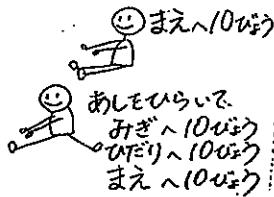 まえへ10びょう
あしをひらいて、
みぎへ10びょう
ひだりへ10びょう
まえへ10びょう